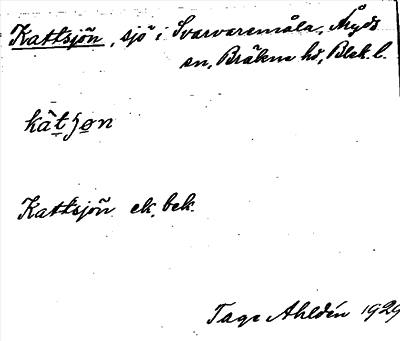 Kattsjön, sjö i Svarvaremåla, Åryds
sn, Bräkne hd, Blek. l.
kàtʃon
Kattsjön ek. bek.
Tage Ahldén 1929